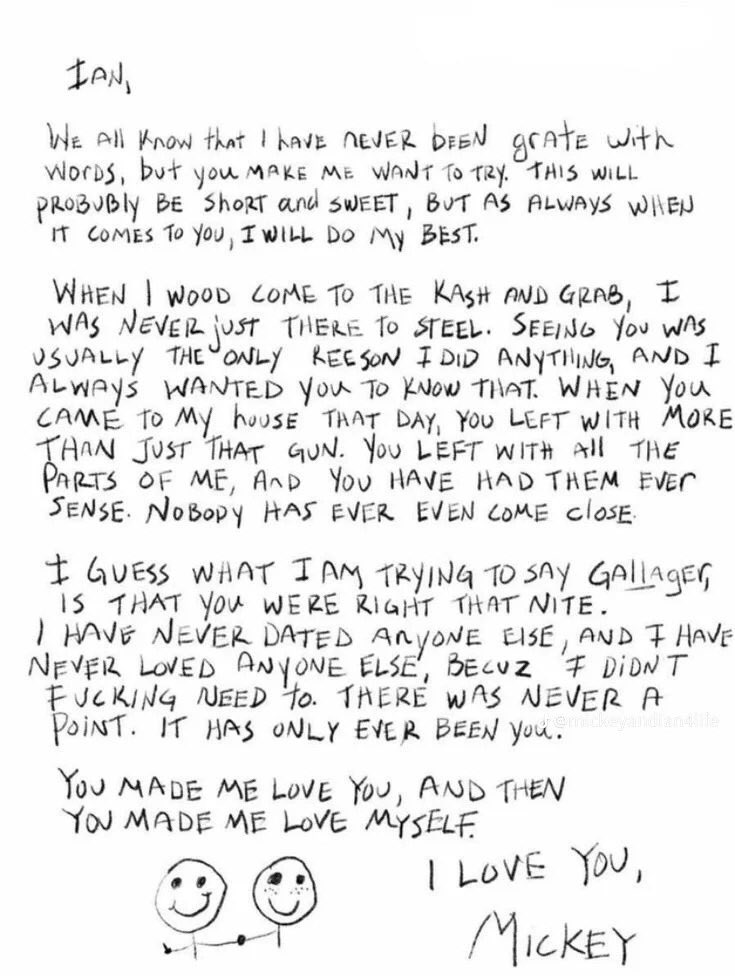 IAN,
WE All KNOW thAT I hAVE NEVER bEEN grAte with
WOrDS, but you MAKE ME WANT TO TRY. THIS WILL
PROBUBly BE ShORT and SWEET, BUT AS ALWAYS WHEN
IT COMES TO YOU, I WILL DO My BEST.
WHEN I WOOD COME TO THE KASH AND GRAB, I
WAS NEVER just THERE TO STEEL. SEEING YOU WAS
USUALLY THE ONLY REESON I DID ANYTHING, AND I
ALWAYS WANTED YOU TO KNOW THAT. WHEN YOU
CAME TO My hOUSE THAT DAY, YOU LEFT WITH MORE
THAN JUST THAT GUN. YOU LEFT WITH All THE
PARTS OF ME, AnD YOU HAVE HAD THEM EVEr
SENSE. NOBODY HAS EVER EVEN COME clOSE.
I GUESS WHAT I AM TRYING TO SAY GAllAGEr,
IS THAT YOU WERE RIGHT THAT NITE.
I HAVE NEVER DATED AnyONE ElSE, AND I HAVE
NEVER LOVED ANYONE ELSE, BECUZ I DIDNT
FUCKING NEED to. THERE WAS NEVER A
POINT. IT HAS ONLY EVER BEEN you.
@mickeyandian4life
YOU MADE ME LOVE YOU, AND THEN
YOU MADE ME LOVE MYSELF.
I LOVE YOU,
MICKEY